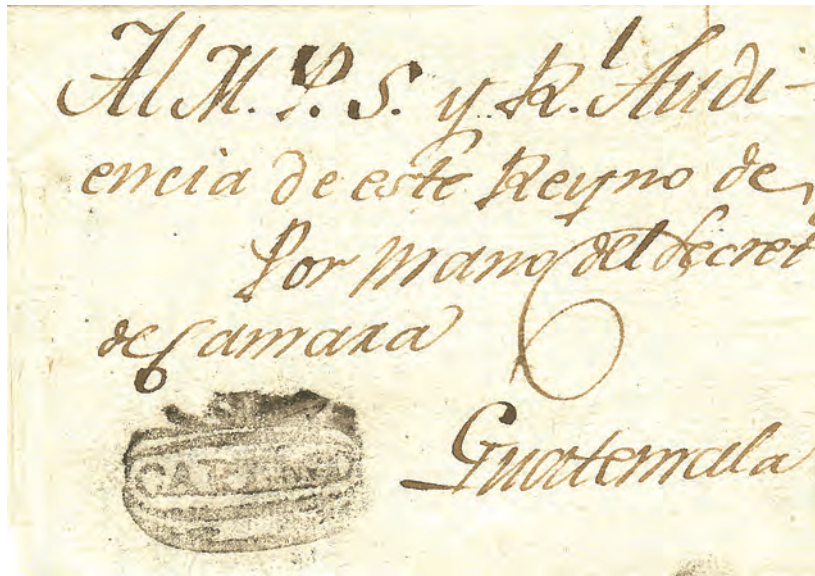 Al M. P. S. y R.l Audi-
encia de este Reyno de
Por mano del Secret
de Camara
Guatemala